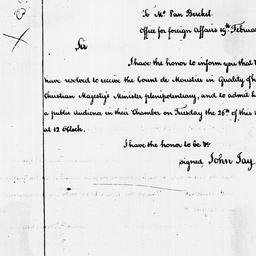 To Mr. Van Berckel
Office for foreign Affairs 19th Februar
Sir
I have the honor to inform you that
have resolved to receive the Count de Moustier in Quality of h
Christian Majesty's Minister plenipotentiary, and to admit h
a public audience in their Chamber on Tuesday the 26th of this
at 12 OClock.
I have the honor to be &c
signed John Jay